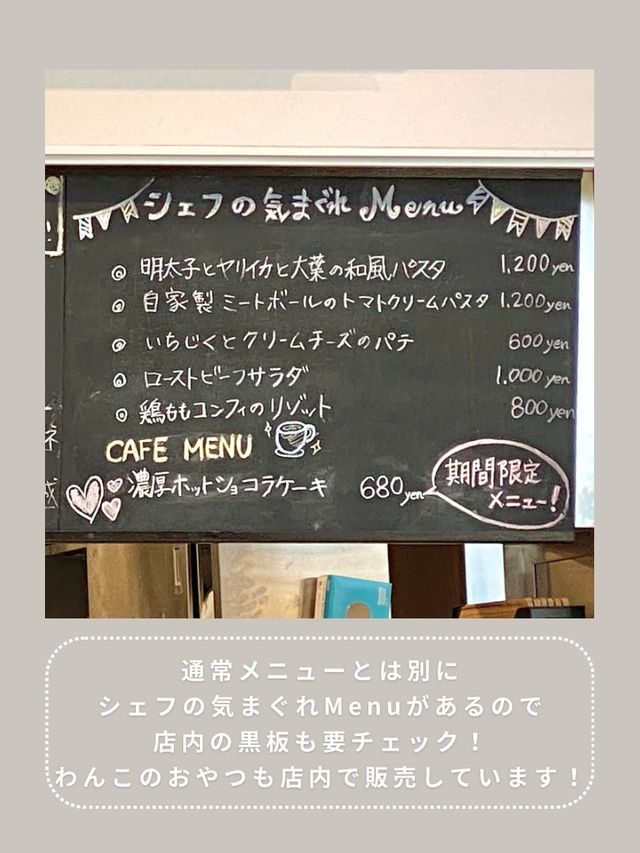 シェフの気まぐれ Menu
◎ 明太子とヤリイカと大葉の和風パスタ 1,200yen
◎ 自家製 ミートボールのトマトクリームパスタ 1,200yen
◎ いちじくとクリームチーズのパテ 600yen
◎ ローストビーフサラダ 1,000yen
◎ 鶏ももコンフィのリゾット 800yen
CAFE MENU
濃厚ホットショコラケーキ 680yen
期間限定
メニュー!
通常メニューとは別に
シェフの気まぐれMenuがあるので
店内の黒板も要チェック！
わんこのおやつも店内で販売しています！